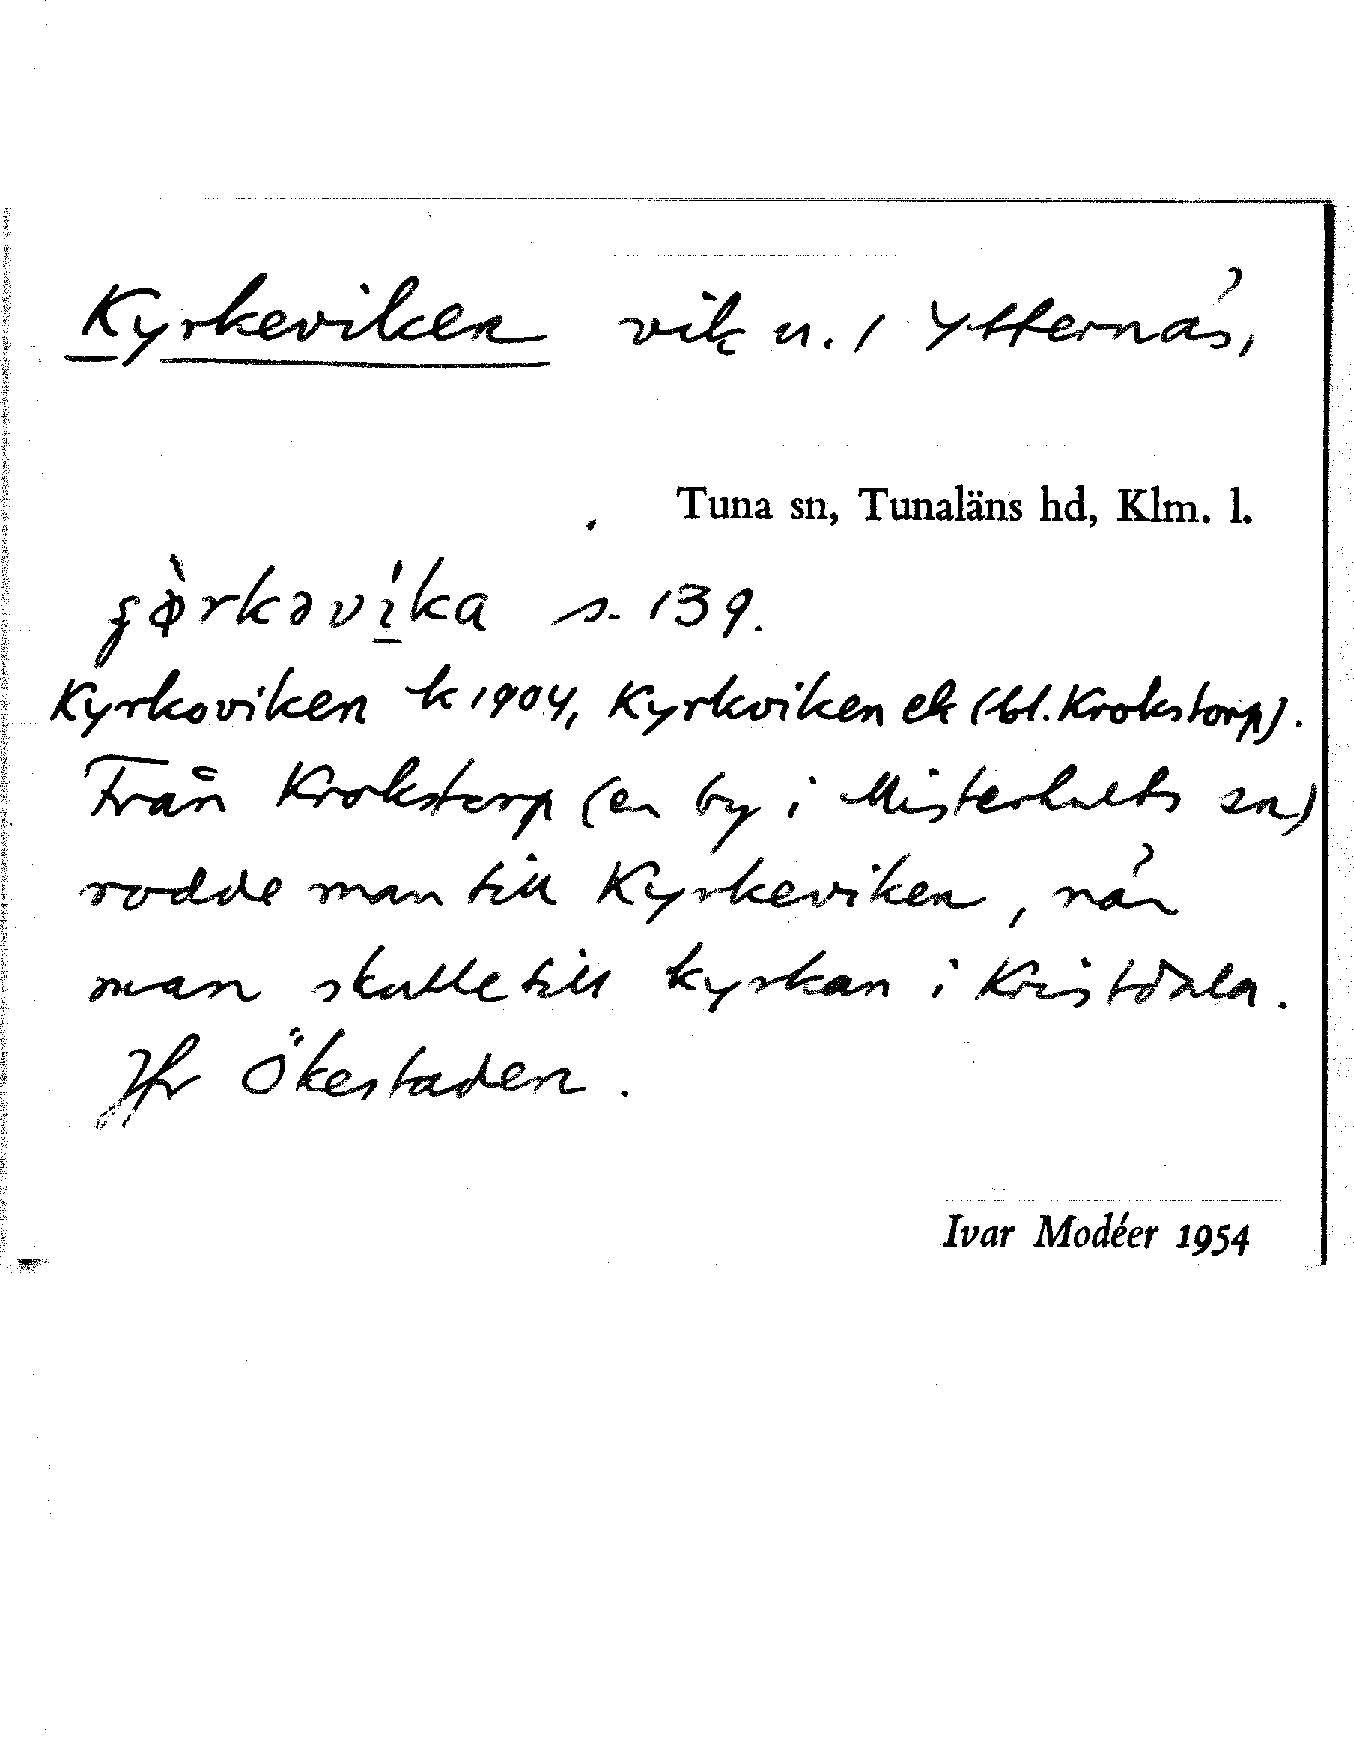 Kyrkeviken vik n. / Ytternäs,
Tuna sn, Tunaläns hd, Klm. l.
s. 139.
Kyrkoviken k 1904, Kyrkviken ek (bl. Krokstorp).
Från Krokstorp (en by i Misterhults sn)
rodde man till Kyrkeviken, när
man skulle till kyrkan i Kristdala.
Jfr Ökestaden.
Ivar Modéer 1954